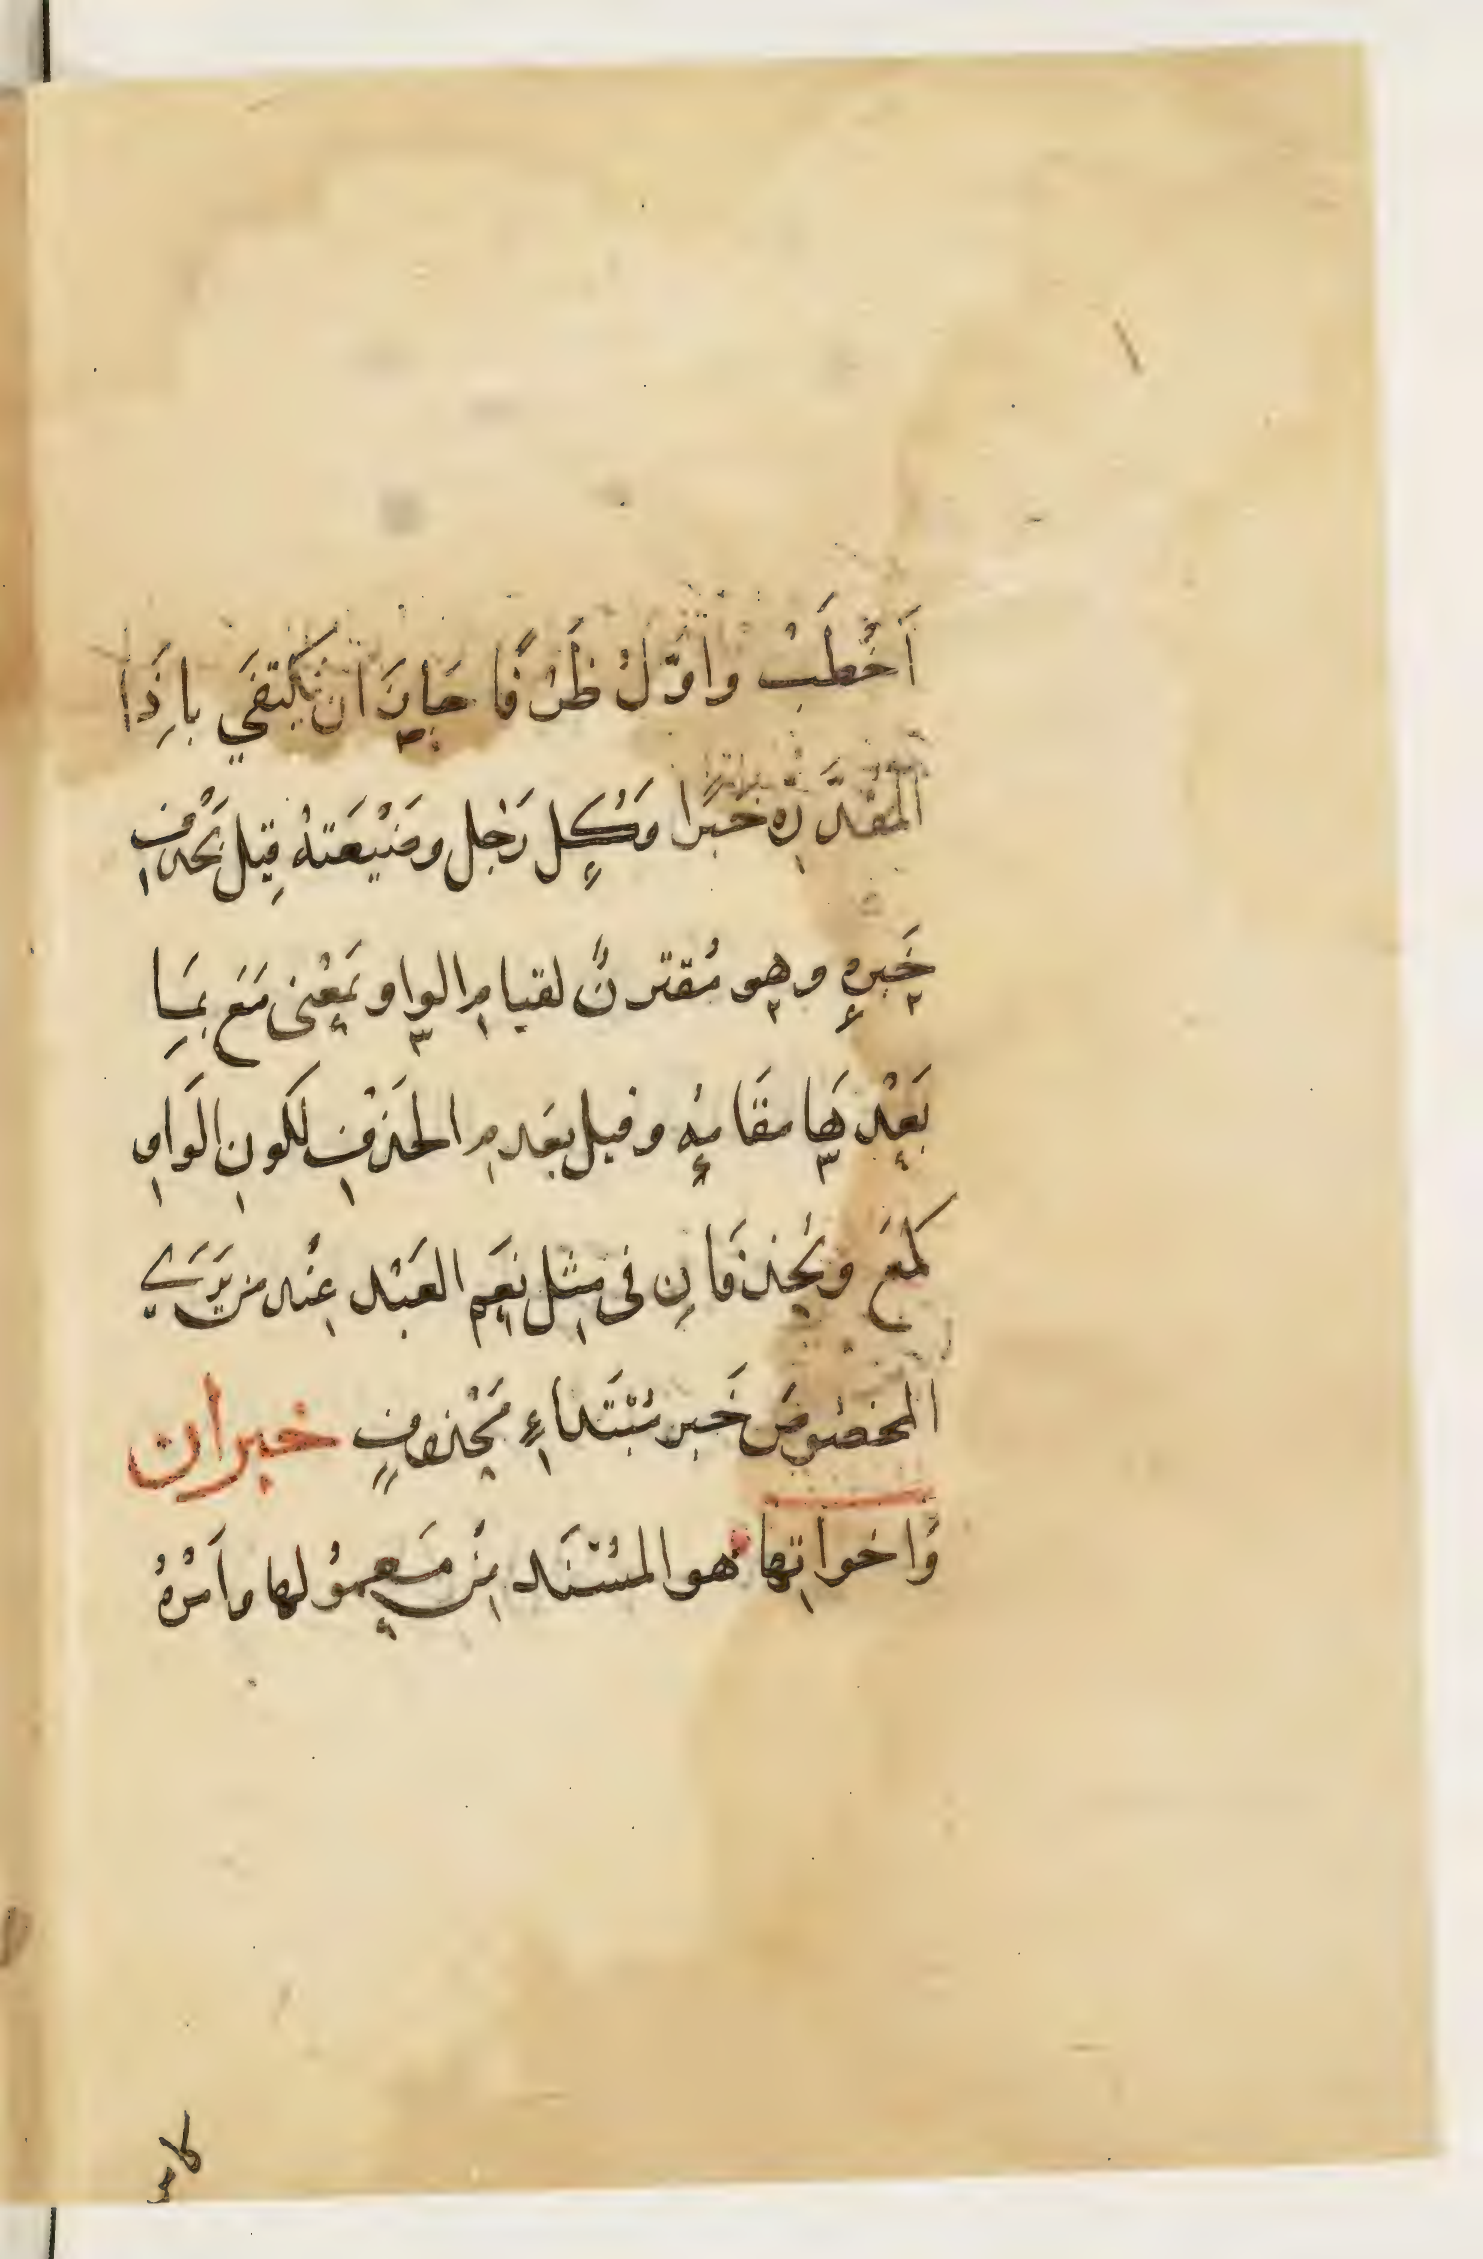 اَخْطَبُ واَوَّلُ ظَرْفًا جَايِزٌ ان يَكتفَي باِذَا
المُقَدَّرِه خَبَرًا وَكُلِ رَجُلٍ وضَيْعَتهُ قِيلَ بَحَذْفِ
خَبَرِهِ وهو مُقترنٌ لقيامِ الواو بمَعْنى مَعَ بمَا
بَعْدهَا مقَامَهُ وقيل بعَدمِ الحَذْفِ لكونِ الوَاوِ
كَمَعَ ويُحذفَانِ فى مِثلِ نعَم العَبْد عِنْد من يَرَي
المخصُوصَ خَبر مُبْتَداءٍ مَحْذوفٍ خبران
وَاخواتِها هو المُسْنَد مِنْ مَعمُولها واَمْرُهُ
كامر